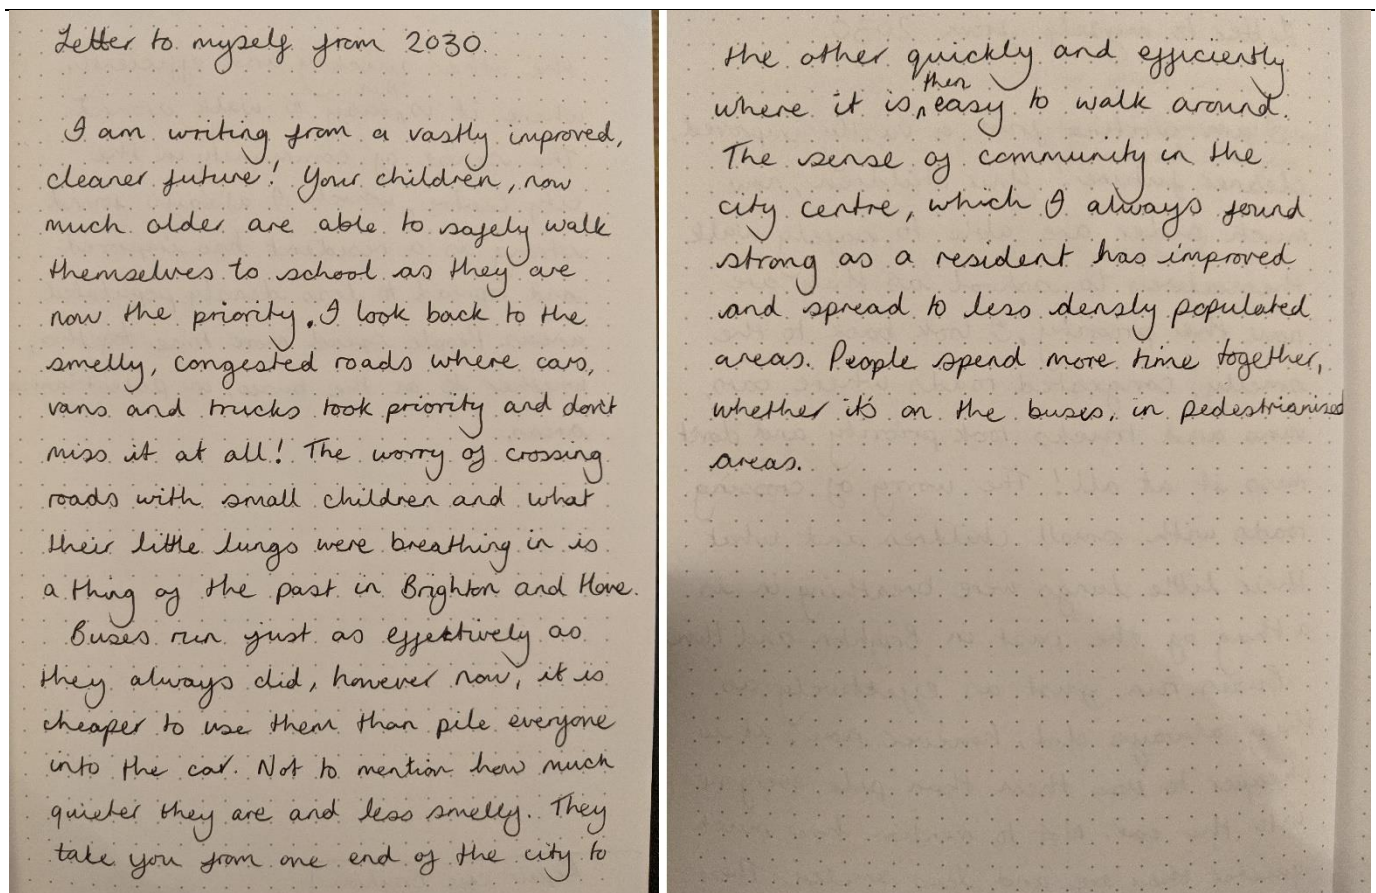 Letter to myself from 2030.
I am writing from a vastly improved,
cleaner future! Your children, now
much older are able to safely walk
themselves to school as they are
now the priority. I look back to the
smelly, congested roads where cars,
vans and trucks took priority and don't
miss it at all! The worry of crossing
roads with small children and what
their little lungs were breathing in is
a thing of the past in Brighton and Hove.
Buses run just as effectively as
they always did, however now, it is
cheaper to use them than pile everyone
into the car. Not to mention how much
quieter they are and less smelly. They
take you from one end of the city to
the other quickly and efficiently
where it is then easy to walk around.
The sense of community in the
city centre, which I always found
strong as a resident has improved
and spread to less densly populated
areas. People spend more time together,
whether it's on the buses, in pedestrianised
areas.